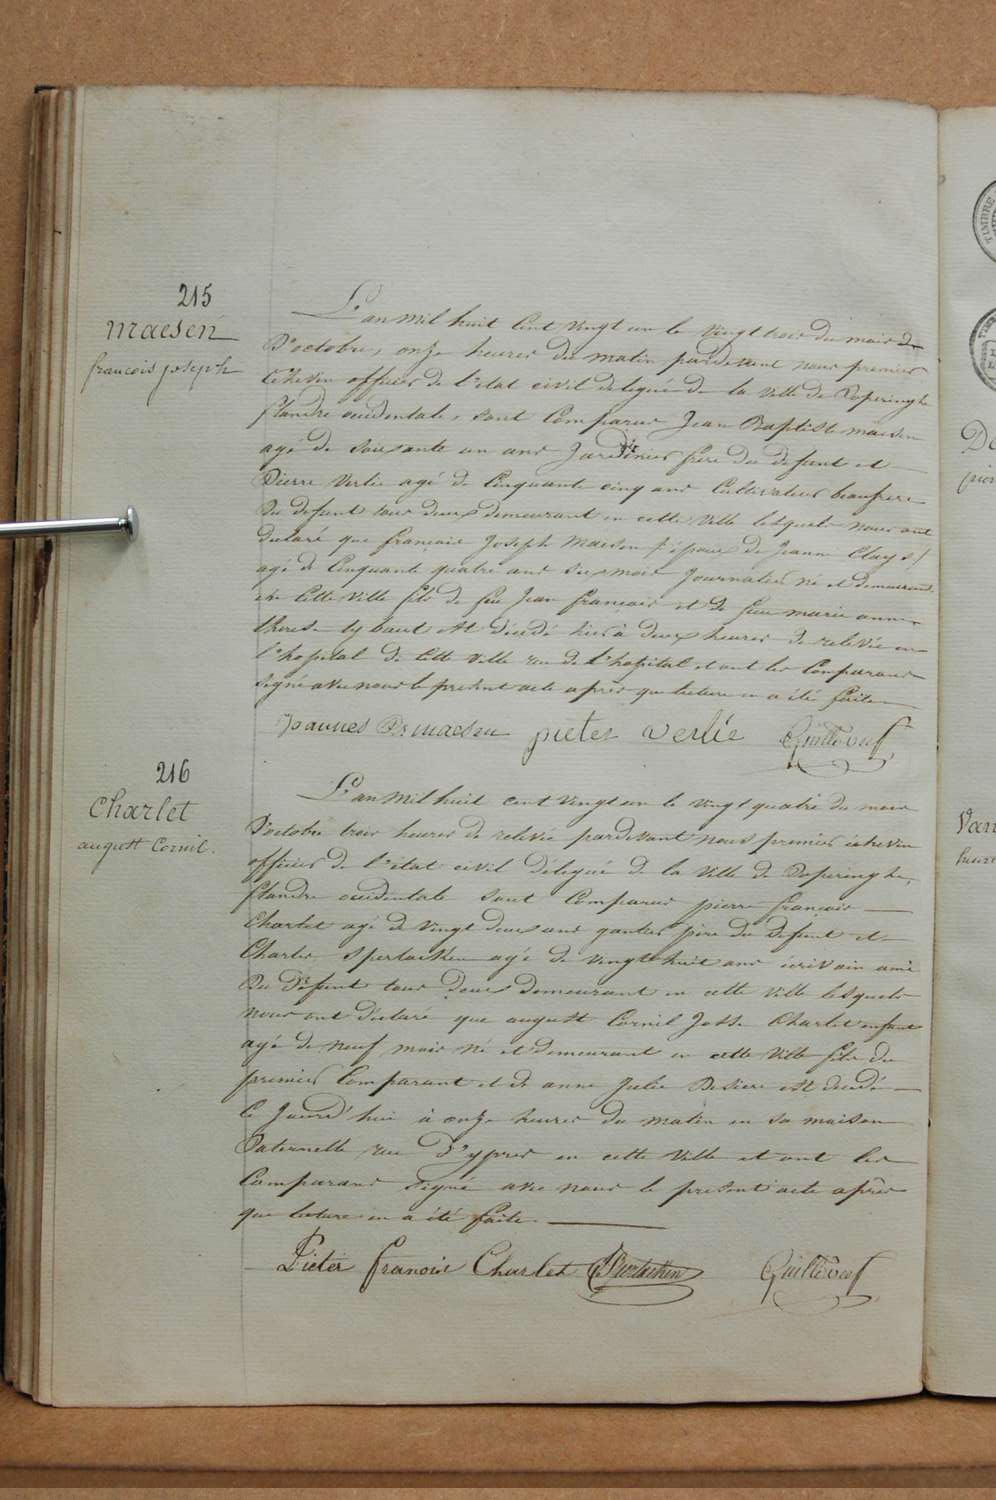 215
maesen
francois joseph
L'an mil huit cent vingt un le vingt trois du mois de
d'octobre, onze heures du matin pardevant nous premier
Echevin officier de l'etat civil delegué de la ville de Poperinghe
flandre occidentale, sont comparus Jean Baptiste maesen
agé de soixante un ans Jardinier frere du defunt et
Pierre Verlie agé de Cinquante cinq ans Cultivateur beaufrere
du defunt tous deux demeurant en cette ville lesquels nous ont
declaré que françois Joseph Maesen époux de Jeanne Clays
agé de Cinquante quatre ans six mois Journalier né et demeurant
en cette ville fils de feu Jean françois et de feue marie anne
therese lybaert est décédé hier à deux heures de relevée en
l'hopital de cette ville rue de l'hopital et ont les Comparans
signé avec nous le present acte après que lecture en a été faite
Joannes Bs maesen pieter verlie Guillebof
216
Charlet
august Cornil.
L'an mil huit cent vingt un le vingt quatre du mois
d'octobre trois heures de relevée pardevant nous premier échevin
officier de l'état civil délegué de la ville de Poperinghe,
flandre occidentale sont Comparus pierre françois
Charlet agé de vingt deux ans gantier père du defunt et
Charles Spertacken agé de vingt huit ans écrivain ami
du défunt tous deux demeurant en cette ville lesquels
nous ont déclaré que august Cornil Josse Charlet enfant
agé de neuf mois né et demeurant en cette ville fils du
premier Comparant et de anne Julie est décédé
ce Jourd'hui à onze heures du matin en sa maison
Paternelle rue d'ypres en cette ville et ont les
Comparans signé avec nous le present acte après
que lecture en a été faite.
Pieter francois Charlet Guillebof
TIMBRE
Van